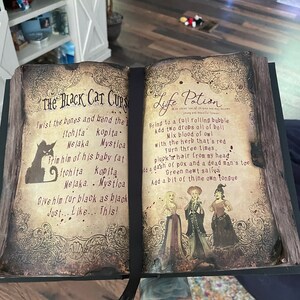 The Black Cat Curse
Twist the bones and bend the
Itchita Kopita
Melaka Mystica
Trim him of his baby fat
Itchita Kopita
Melaka Mystica
Give him fur black as black
Just... Like... This!
Life Potion
Bring to a full rolling bubble
Add two drops oil of boil
Mix blood of owl
with the herb that's red
Turn three times,
pluck a hair from my head
Add a dash of pox and a dead man's toe
Green newt saliva
Add a bit of thine own tongue